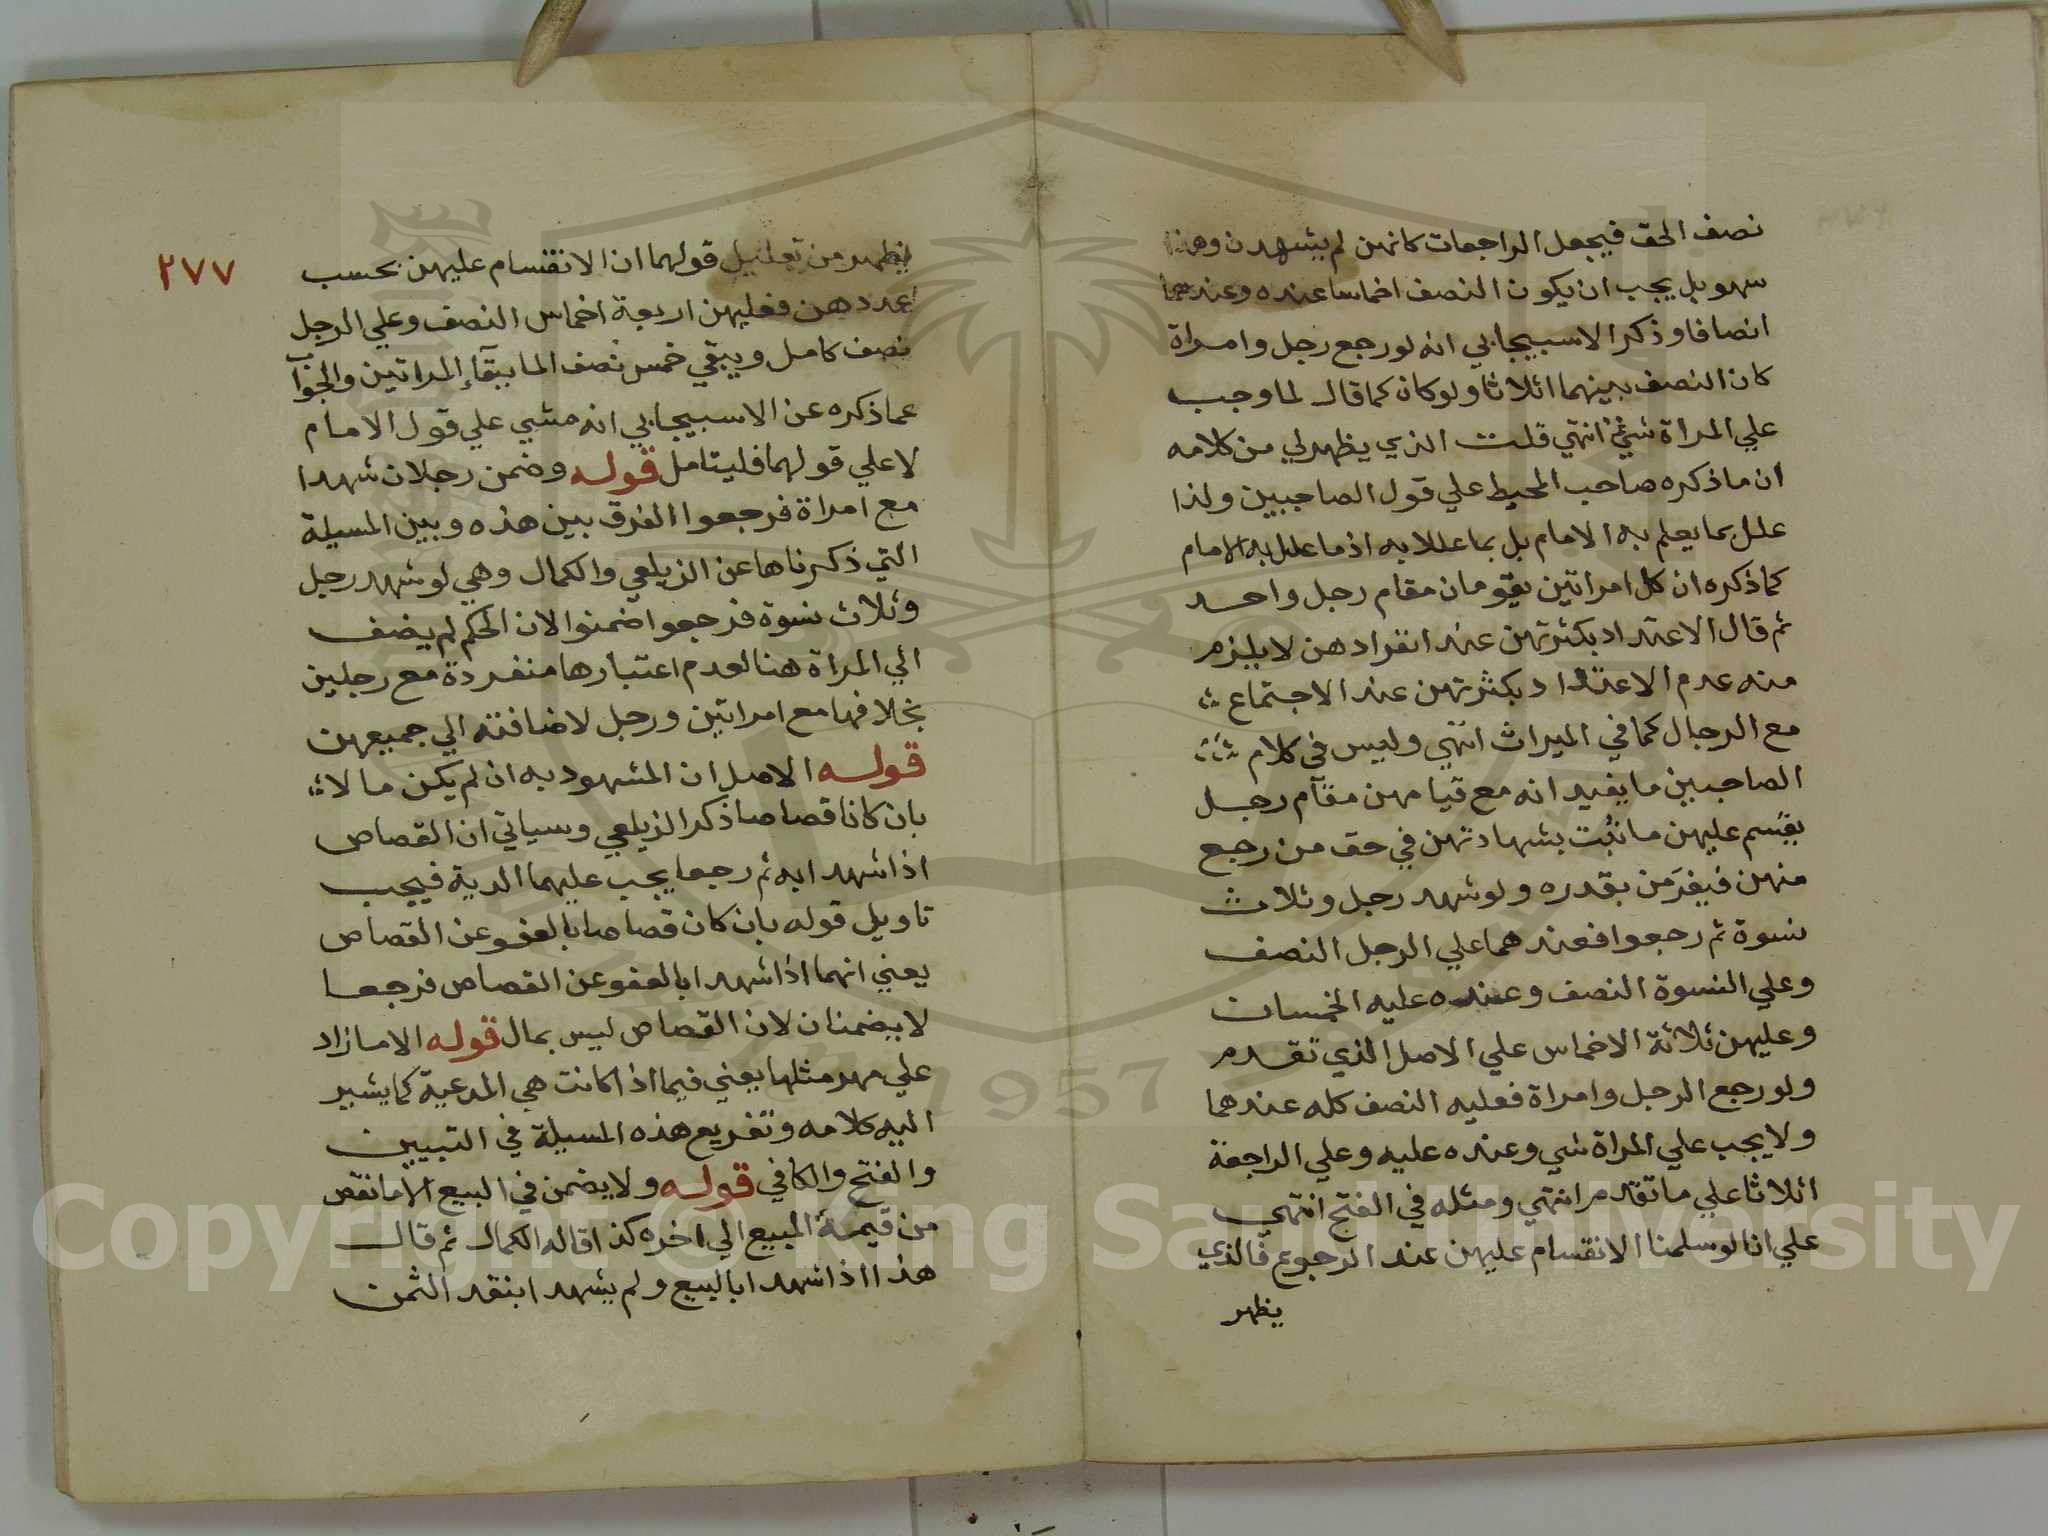 نصف الحق فيجعل الراجعات كانهن لم يشهدن وهذا
سهو بل يجب ان يكون النصف اخماسا عنده وعندهما
انصافا وذكر الاسبيجابي انه لو رجع رجل وامراة
كان النصف بينهما اثلاثا ولو كان كما قال لما وجب
علي المراة شيء انتهي قلت الذي يظهر لي من كلامه
ان ما ذكره صاحب المحيط علي قول الصاحبين ولذا
علل بما يعلم به الامام بل بما عللا به اذ ما علل به الامام
كما ذكره ان كل امراتين يقومان مقام رجل واحد
ثم قال الاعتداد بكثرتهن عند انفرادهن لا يلزم
منه عدم الاعتداد بكثرتهن عند الاجتماع
مع الرجال كما في الميراث انتهي وليس في كلام
الصاحبين ما يفيد انه مع قيامهن مقام رجل
يقسم عليهن ما ثبت بشهادتهن في حق من رجع
منهن فيغرمن بقدره ولو شهد رجل وثلاث
نسوة ثم رجعوا فعندهما علي الرجل النصف
وعلي النسوة النصف وعنده عليه الخمسان
وعليهن ثلاثة الاخماس علي الاصل الذي تقدم
ولو رجع الرجل وامراة فعليه النصف كله عندهما
ولا يجب علي المراة شي وعنده عليه وعلي الراجعة
اثلاثا علي ما تقدم انتهي ومثله في الفتح انتهي
علي انا لو سلمنا الانقسام عليهن عند الرجوع فالذي
يظهر
٢٧٧
يظهر من تعليل قولهما ان الانقسام عليهن بحسب
عددهن فعليهن اربعة اخماس النصف وعلي الرجل
نصف كامل ويبقي خمس نصف المال ببقاء المراتين والجواب
عما ذكره عن الاسبيجابي انه مشي علي قول الامام
لا علي قولهما فليتامل قوله وضمن رجلان شهدا
مع امراة فرجعوا الفرق بين هذه وبين المسيلة
التي ذكرناها عن الزيلعي والكمال وهي لو شهد رجل
وثلاث نسوة فرجعوا ضمنوا لان الحكم لم يضف
الي المراة هنا لعدم اعتبارها منفردة مع رجلين
بخلافها مع امراتين ورجل لاضافته الي جميعهن
قوله الاصل ان المشهود به ان لم يكن مالا
بان كانا قصاصا ذكر الزيلعي وسياتي ان القصاص
اذا شهدا به ثم رجعا يجب عليهما الدية فيجب
تاويل قوله بان كان قصاصا بالعفو عن القصاص
يعني انهما اذا شهدا بالعفو عن القصاص فرجعا
لا يضمنان لان القصاص ليس بمال قوله الا ما زاد
علي مهر مثلها يعني فيما اذا كانت هي المدعية كما يشير
اليه كلامه وتفريع هذه المسيلة في التبيين
والفتح والكافي قوله ولا يضمن في البيع الا ما نقص
من قيمة المبيع الي اخره كذا قاله الكمال ثم قال
هذا اذا شهدا بالبيع ولم يشهدا بنقد الثمن
1957
Copyright © King Saud University